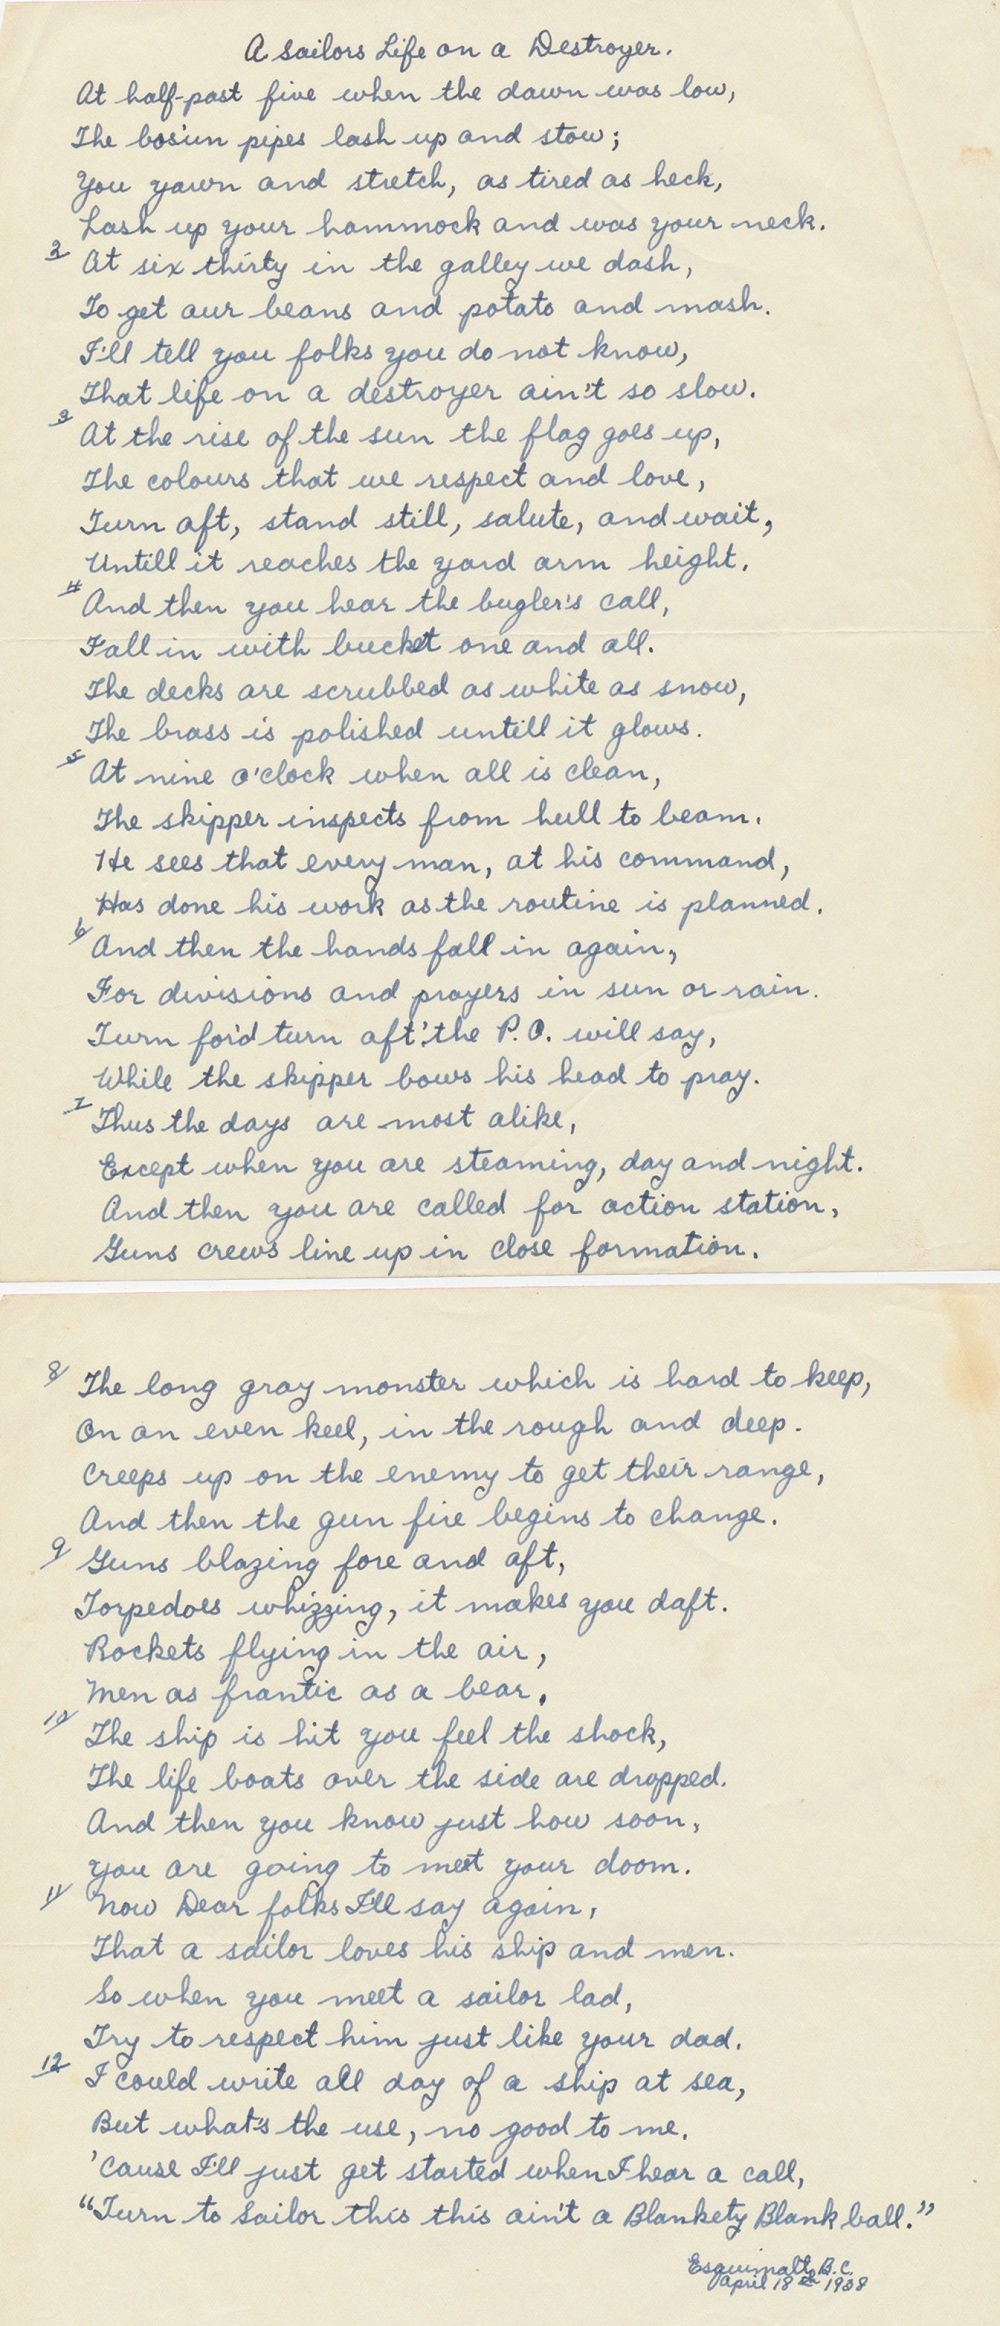 A Sailors Life on a Destroyer.
At half-past five when the dawn was low,
The bos'un pipes lash up and stow;
You yawn and stretch, as tired as heck,
Lash up your hammock and was your neck.
2 At six thirty in the galley we dash,
To get our beans and potato and mash.
I'll tell you folks you do not know,
That life on a destroyer ain't so slow.
3 At the rise of the sun the flag goes up,
The colours that we respect and love,
Turn aft, stand still, salute, and wait,
Untill it reaches the yard arm height.
4 And then you hear the bugler's call,
Fall in with bucket one and all.
The decks are scrubbed as white as snow,
The brass is polished untill it glows.
5 At nine o'clock when all is clean,
The skipper inspects from hull to beam.
He sees that every man, at his command,
Has done his work as the routine is planned.
6 And then the hands fall in again,
For divisions and prayers in sun or rain.
Turn for'd turn aft' the P.O. will say,
While the skipper bows his head to pray.
7 Thus the days are most alike,
Except when you are steaming, day and night.
And then you are called for action station,
Guns crews line up in close formation.
8 The long gray monster which is hard to keep,
On an even keel, in the rough and deep.
Creeps up on the enemy to get their range,
And then the gun fire begins to change.
9 Guns blazing fore and aft,
Torpedoes whizzing, it makes you daft.
Rockets flying in the air,
Men as frantic as a bear.
10 The ship is hit you feel the shock,
The life boats over the side are dropped.
And then you know just how soon,
You are going to meet your doom.
11 Now Dear folks I'll say again,
That a sailor loves his ship and men.
So when you meet a sailor lad,
Try to respect him just like your dad.
12 I could write all day of a ship at sea,
But what's the use, no good to me.
'Cause I'll just get started when I hear a call,
"Turn to Sailor this this ain't a Blankety Blank ball."
Esquimalt, B.C.
April 18th 1938